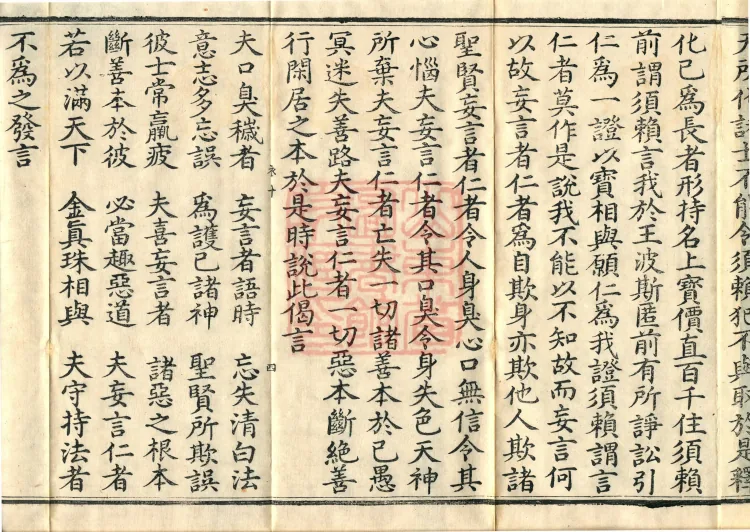 不能令須賴犯不與取於是釋
化己爲長者形持名上寶價直百千住須賴
前謂須賴言我於王波斯匿前有所諍訟引
仁爲一證以寶相與願仁爲我證須賴謂言
仁者莫作是說我不能以不知故而妄言何
以故妄言者仁者爲自欺身亦欺他人欺諸
聖賢妄言者仁者令人身臭心口無信令其
心惱夫妄言仁者令其口臭令身失色天神
所棄夫妄言仁者亡失一切諸善本於己愚
冥迷失善路夫妄言仁者一切惡本斷絕善
行閑居之本於是時說此偈言
十 四
夫口臭穢者 妄言者語時 忘失清白法
意志多忘誤 爲護己諸神 聖賢所欺誤
彼士常羸疲 夫喜妄言者 諸惡之根本
斷善本於彼 必當趣惡道 夫妄言仁者
若以滿天下 金真珠相與 夫守持法者
不爲之發言